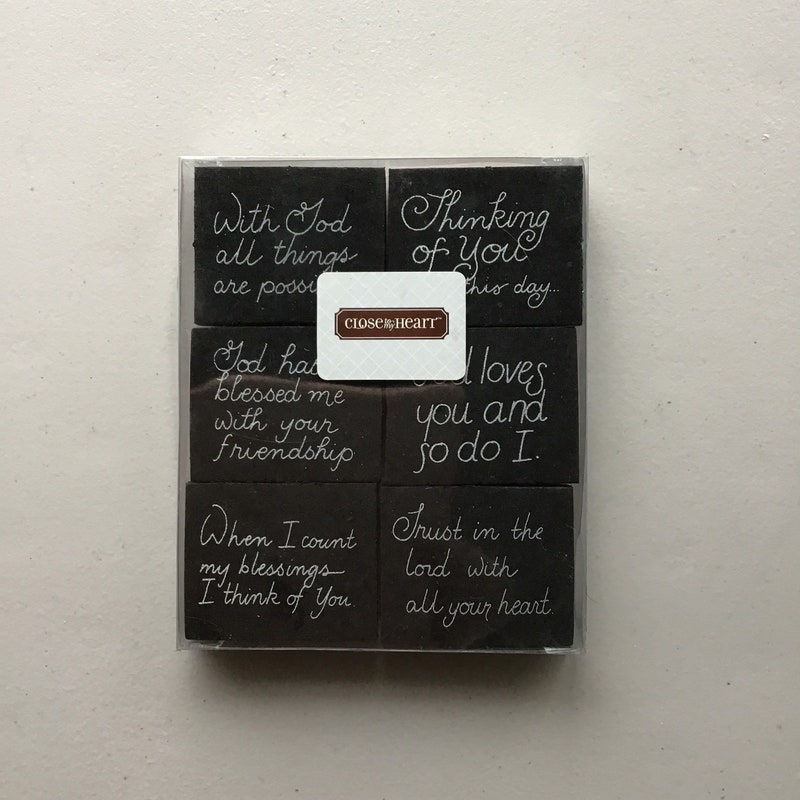 With God
all things
are possi
Thinking
of You
this day...
CLOSE to my HEART™
God has
blessed me
with your
friendship
loves
you and
so do I.
When I count
my blessings
I think of You.
Trust in the
lord with
all your heart.